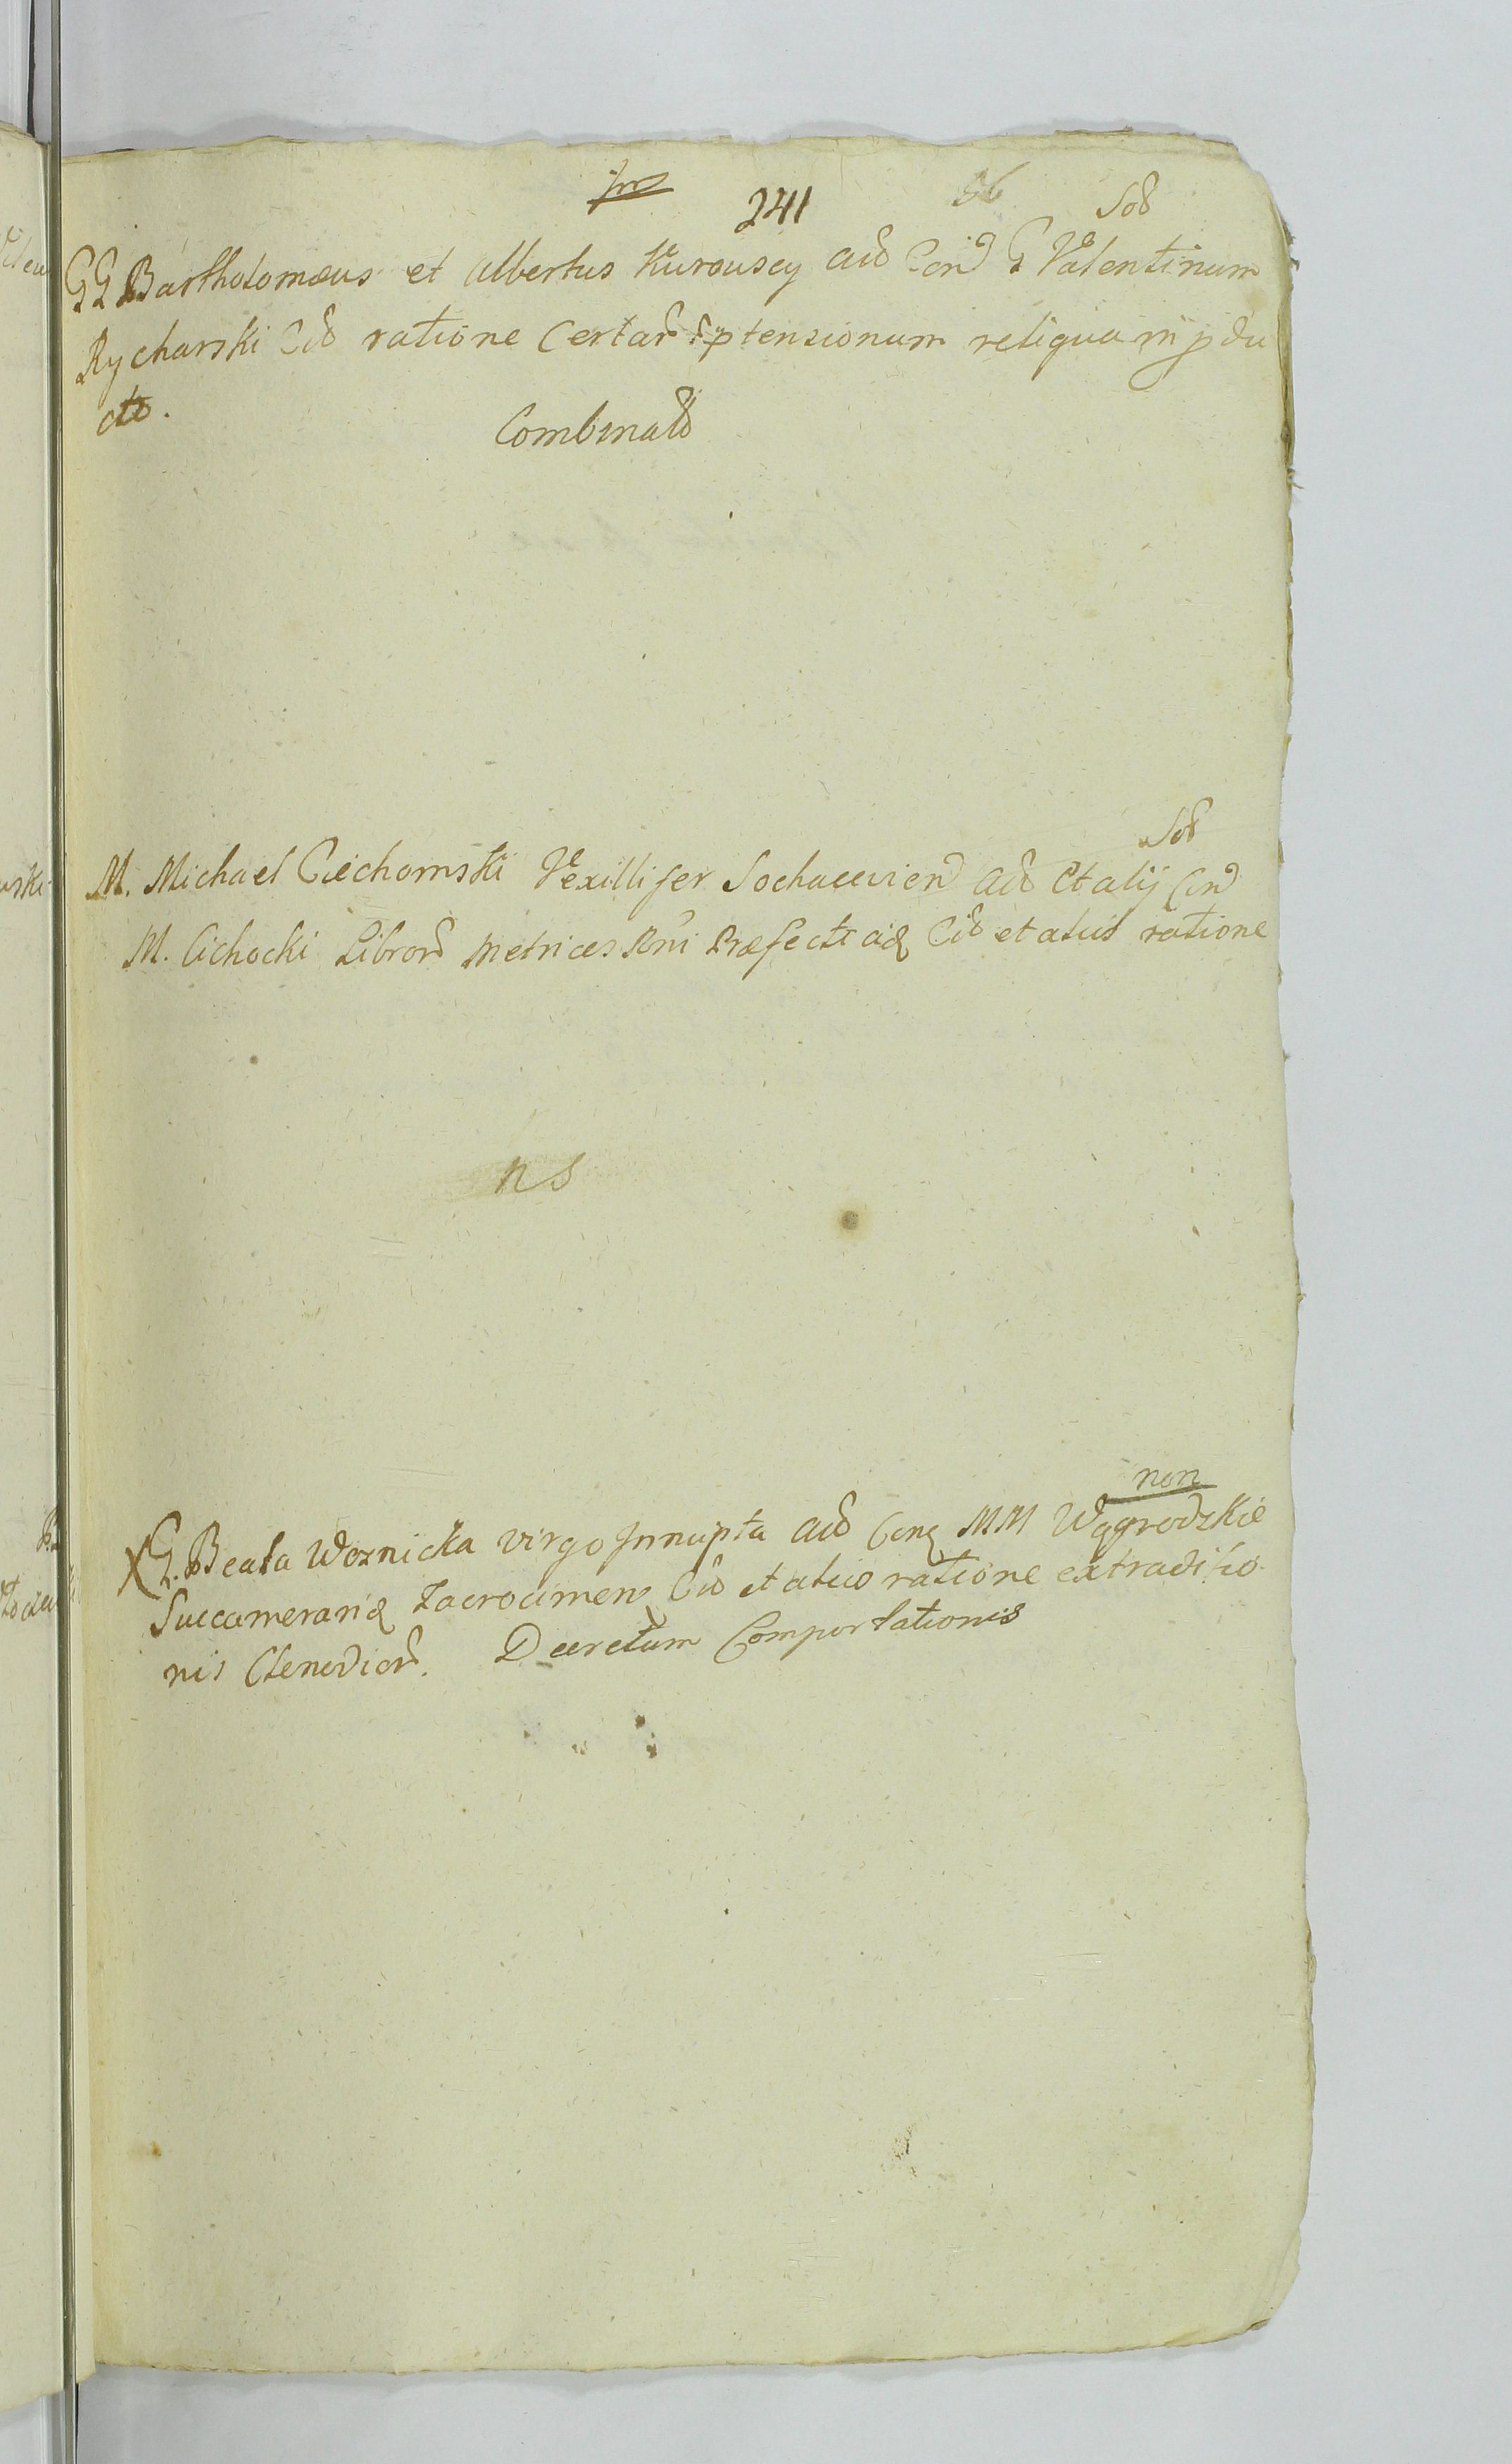 241 96 Sod
GG Bartholomæus et Albertus Kurouscy Acd Con G Valentinum
Rycharski Cid ratione Certar ptensionum reliqua in pdu
cto.
Combinatd
Sod
M. Michael Ciechomski Vexillifer Sochacevien Acd et alij Con
M. Cichocki Libror Metrices Rni Præfectu Cid et alius ratione
ns
non
X G. Beata Woznicka virgo Innupta Acd Conq MM Wągrodzkie
Succamerariq Zacrocimen Cid et alias ratione extraditio
nis Clenodior. Decretum Comportationis